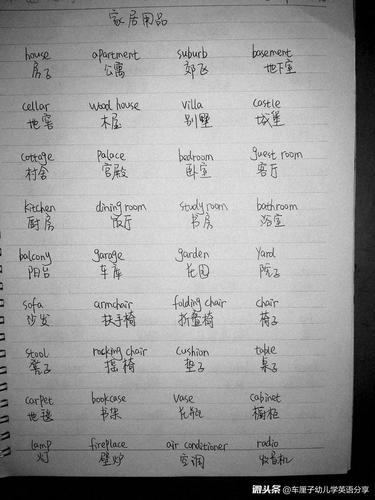 家居用品
house apartment suburb basement
房子 公寓 郊飞 地下室
cellar wood house villa castle
地窖 木屋 别墅 城堡
cottage palace bedroom guest room
村舍 宫殿 卧室 客厅
kitchen dining room study room bathroom
厨房 饭厅 书房 浴室
balcony garage garden yard
阳台 车库 花园 院子
sofa armchair folding chair chair
沙发 扶手椅 折叠椅 椅子
stool rocking chair cushion table
凳子 摇椅 垫子 桌子
carpet bookcase vase cabinet
地毯 书架 花瓶 橱柜
lamp fireplace air conditioner radio
灯 壁炉 空调 收音机
头条 @车厘子幼儿学英语分享